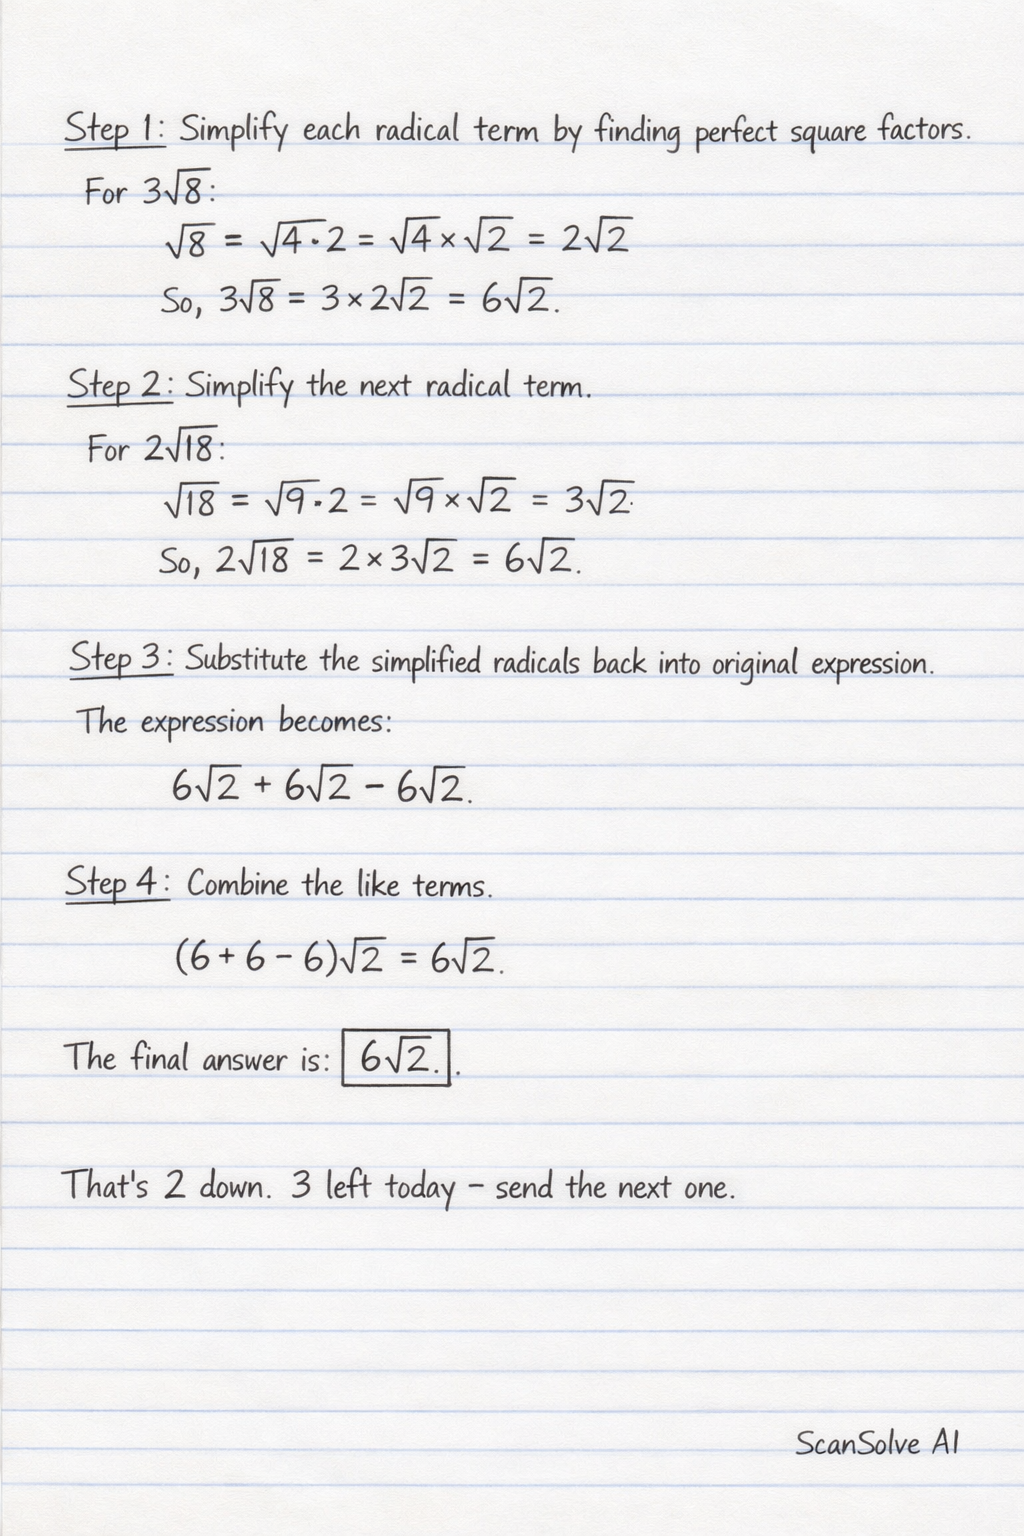 Step 1: Simplify each radical term by finding perfect square factors.
For 3√8:
√8 = √4·2 = √4 × √2 = 2√2
So, 3√8 = 3 × 2√2 = 6√2.
Step 2: Simplify the next radical term.
For 2√18:
√18 = √9·2 = √9 × √2 = 3√2.
So, 2√18 = 2 × 3√2 = 6√2.
Step 3: Substitute the simplified radicals back into original expression.
The expression becomes:
6√2 + 6√2 − 6√2.
Step 4: Combine the like terms.
(6 + 6 − 6)√2 = 6√2.
The final answer is: 6√2..
That's 2 down. 3 left today – send the next one.
ScanSolve AI